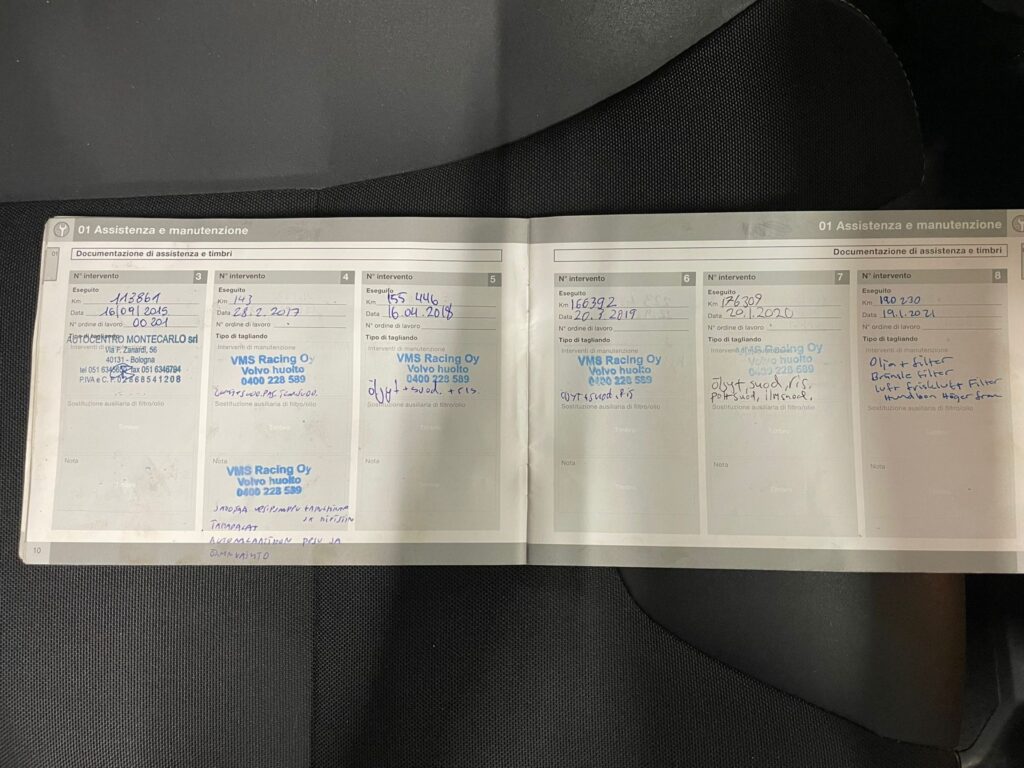 01 Assistenza e manutenzione
01
Documentazione di assistenza e timbri
N° intervento 3
Eseguito
Km 113861
Data 16/09/2015
N° ordine di lavoro 00201
Tipo di tagliando
AUTOCENTRO MONTECARLO srl
Via F. Zanardi, 56
40131 - Bologna
Sostituzione ausiliaria di filtro/olio
Nota
N° intervento 4
Eseguito
Km 143
Data 28.2.2017
N° ordine di lavoro
Tipo di tagliando
Interventi di manutenzione
VMS Racing Oy
Volvo huolto
0400 228 589
Sostituzione ausiliaria di filtro/olio
Timbro
Nota
VMS Racing Oy
Volvo huolto
0400 228 589
JA
N° intervento 5
Eseguito
Km 155 446
Data 16.04.2018
N° ordine di lavoro
Tipo di tagliando
Interventi di manutenzione
VMS Racing Oy
Volvo huolto
0400 228 589
öljyt + suod. + ris.
Sostituzione ausiliaria di filtro/olio
Timbro
Nota
Timbro
10
01 Assistenza e manutenzione
Documentazione di assistenza e timbri
N° intervento 6
Eseguito
Km 166392
Data 20.3.2019
N° ordine di lavoro
Tipo di tagliando
Interventi di manutenzione
VMS Racing Oy
Volvo huolto
0400 228 589
Sostituzione ausiliaria di filtro/olio
Timbro
Nota
Timbro
N° intervento 7
Eseguito
Km 176309
Data 20.1.2020
N° ordine di lavoro
Tipo di tagliando
Interventi di manutenzione
VMS Racing Oy
Volvo huolto
0400 228 589
öljyt, suod, ris,
polt.suod, ilmsuod.
Sostituzione ausiliaria di filtro/olio
Timbro
Nota
Timbro
N° intervento 8
Eseguito
Km 190230
Data 19.1.2021
N° ordine di lavoro
Tipo di tagliando
Interventi di manutenzione
Olja + filter
Bränsle filter
Luft friskluft Filter
Sostituzione ausiliaria di filtro/olio
Timbro
Nota
Timbro